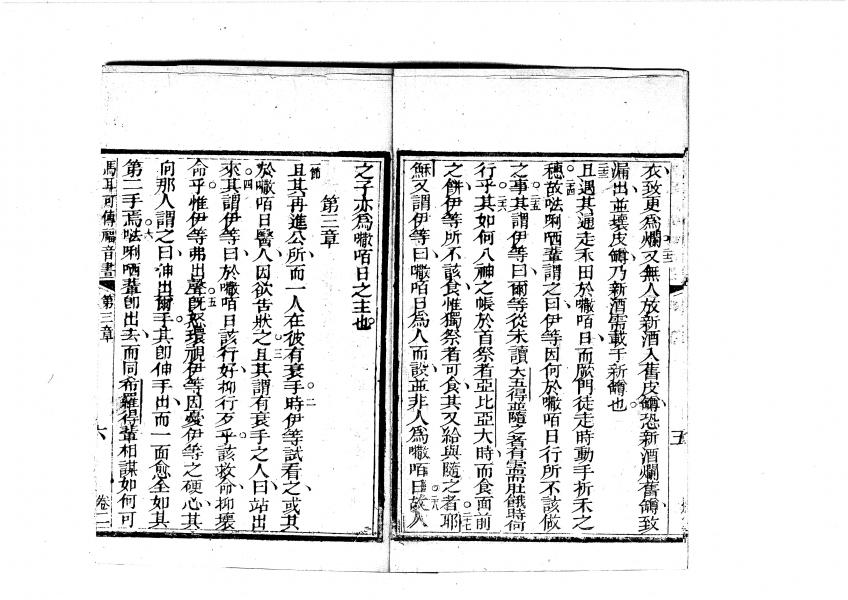 衣致更爲爛又無人放新酒入舊皮罇恐新酒爛舊罇致
漏出並壞皮罇乃新酒需載于新罇也
且遇其通走禾田於嚈咟日而厥門徒走時動手折禾之
穗故㕸唎哂輩謂之曰伊等因何於嚈咟日行所不該做
之事其謂伊等曰爾等從未讀大五得並隨之者有需肚餓時何
行乎其如何入神之帳於首祭者亞比亞大時而食面前
之餅伊等所不該食惟獨祭者可食其又給與隨之者耶
穌又謂伊等曰嚈咟日爲人而設並非人爲嚈咟日故人
五
之子亦爲嚈咟日之主也
第三章
一節
且其再進公所而一人在彼有衰手時伊等試看之或其
於嚈咟日醫人因欲告狀之且其謂有衰手之人曰站出
來其謂伊等曰於嚈咟日該行好抑行歹乎該救命抑壞
命乎惟伊等弗出聲既怒環視伊等因憂伊等之硬心其
向那人謂之曰伸出爾手其卽伸手出而一面愈全如其
第二手焉㕸唎哂輩卽出去而同希羅得輩相謀如何可
馬耳可傳福音書
第三章
六
卷二